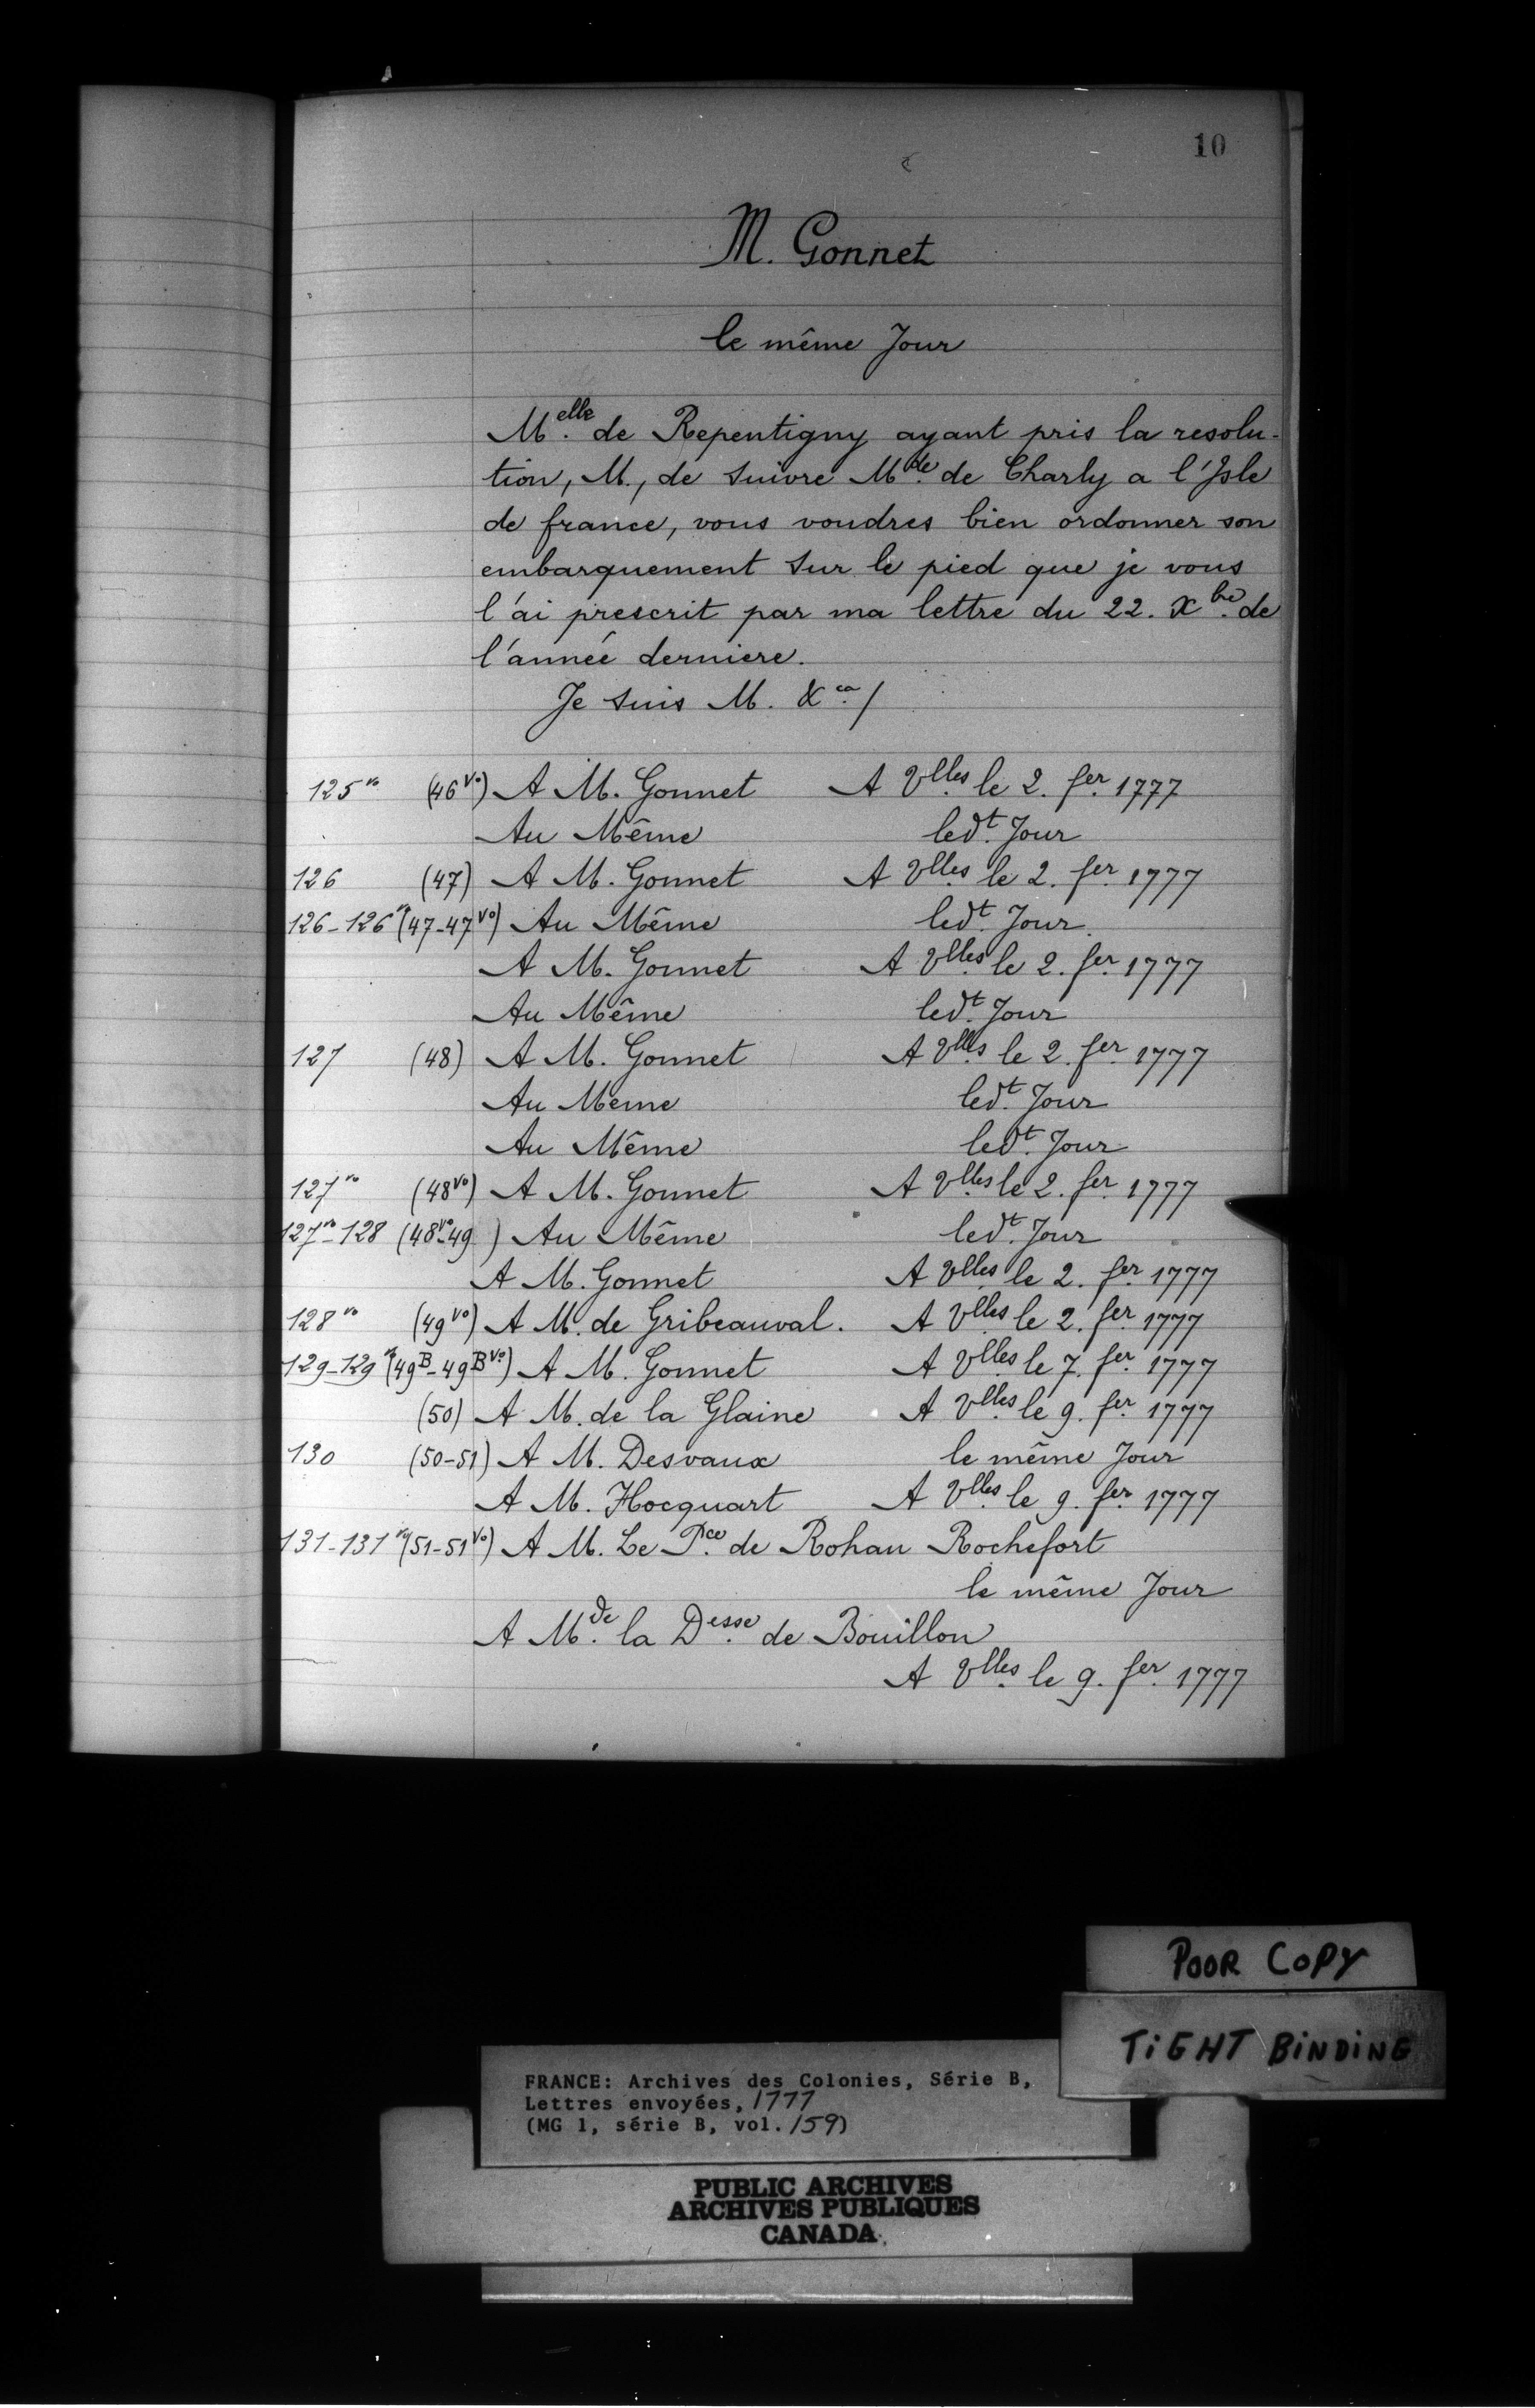 10
M. Gonnet
le même Jour
M.elle de Repentigny ayant pris la resolu-
tion, M., de suivre M.de de Charly a l'Isle
de france, vous voudres bien ordonner son
embarquement sur le pied que je vous
l'ai prescrit par ma lettre du 22. Xbre. de
l'année derniere.
Je suis M. &ca./
125vo (46vo) A M. Gonnet A Vlles. le 2. fer. 1777
Au Même ledt. Jour
126 (47) A M. Gonnet A Vlles. le 2. fer. 1777
126-126vo (47-47vo) Au Même ledt. Jour.
A M. Gonnet A Vlles. le 2. fer. 1777
Au Même ledt. Jour
127 (48) A M. Gonnet A Vlles. le 2. fer. 1777
Au Meme ledt. Jour
Au Même ledt. Jour
127vo (48vo) A M. Gonnet A Vlles. le 2. fer. 1777
127vo-128 (48vo-49 ) Au Même ledt. Jour
A M. Gonnet A Vlles. le 2. fer. 1777
128vo (49vo) A M. de Gribeauval. A Vlles. le 2. fer. 1777
129-129vo (49B-49Bvo) A M. Gonnet A Vlles. le 7. fer. 1777
(50) A M. de la Glaine A Vlles. le 9. fer. 1777
130 (50-51) A M. Desvaux le même Jour
A M. Hocquart A Vlles. le 9. fer. 1777
131-131vo (51-51vo) A M. Le Pce. de Rohan Rochefort
le même Jour
A M.de la Desse. de Bouillon
A Vlles. le 9. fer. 1777
POOR COPY
TiGHT BiNDiNG
FRANCE: Archives des Colonies, Série B,
Lettres envoyées, 1777
(MG 1, série B, vol. 159)
PUBLIC ARCHIVES
ARCHIVES PUBLIQUES
CANADA